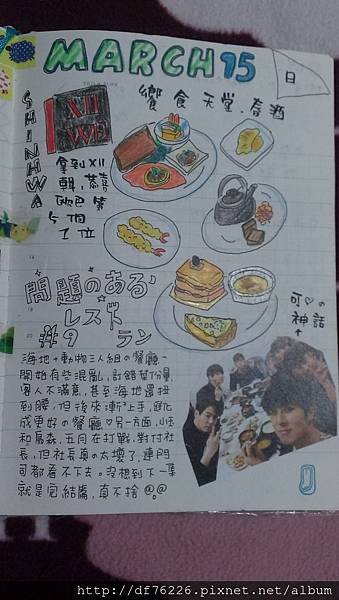 MARCH 15
日
SHINHWA
XII
WE
饗食天堂.春酒
拿到XII
輯,恭喜
歐巴第
个個
1位
問題のある
レストラン
#9
可♡の
神話
海地+動物三人組の餐廳一
開始有些混亂,訂錯菜份量,
客人不滿意,甚至海地還扭
到腰,但後來漸上手,變化
成更好の餐廳♡另一方面,小玉
和 五月在打戰,對付社
長,但社長真の太壞了,連門
司都看不下去。沒想到下一集
就是完結篇,真不捨@@。
http://df76226.pixnet.net/album